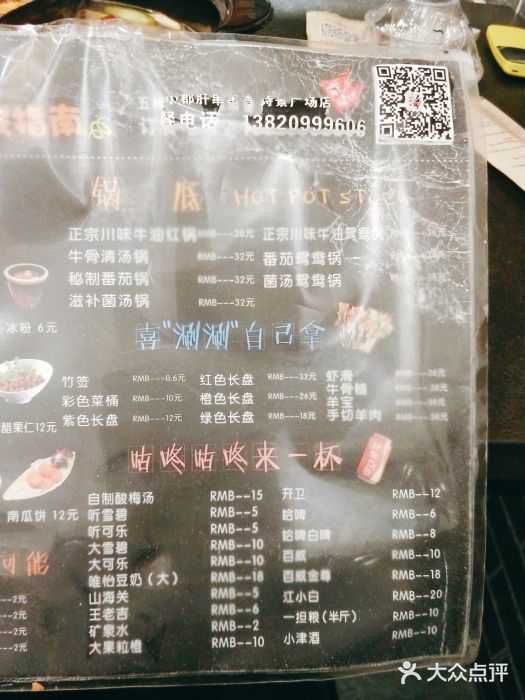 小郡肝串串
诗景广场店
电话 13820999606
锅底 HOT POT STOCK
正宗川味牛油红锅 RMB---38元
牛骨清汤锅 RMB---32元
秘制番茄锅 RMB---32元
滋补菌汤锅 RMB---32元
正宗川味牛油鸳鸯锅
番茄鸳鸯锅
菌汤鸳鸯锅
冰粉 6元
喜"涮涮"自己拿
竹签 RMB---0.6元
彩色菜桶 RMB---10元
紫色长盘 RMB---12元
红色长盘 RMB---32元
橙色长盘 RMB---26元
绿色长盘 RMB---18元
虾滑 RMB---38元
牛骨髓 RMB---38元
羊宝 RMB---38元
手切羊肉 RMB---38元
醋果仁12元
咕咚咕咚来一杯
南瓜饼 12元
自制酸梅汤 RMB--15
听雪碧 RMB--5
听可乐 RMB--5
大雪碧 RMB--10
大可乐 RMB--10
唯怡豆奶（大） RMB--18
山海关 RMB--5
王老吉 RMB--6
矿泉水 RMB--2
大果粒橙 RMB--10
开卫 RMB--12
哈啤 RMB--6
哈啤白啤 RMB--8
百威 RMB--10
百威金尊 RMB--18
江小白 RMB--20
一担粮(半斤) RMB--10
小津酒 RMB--10
可能
---2元
---2元
---2元
---2元
大众点评